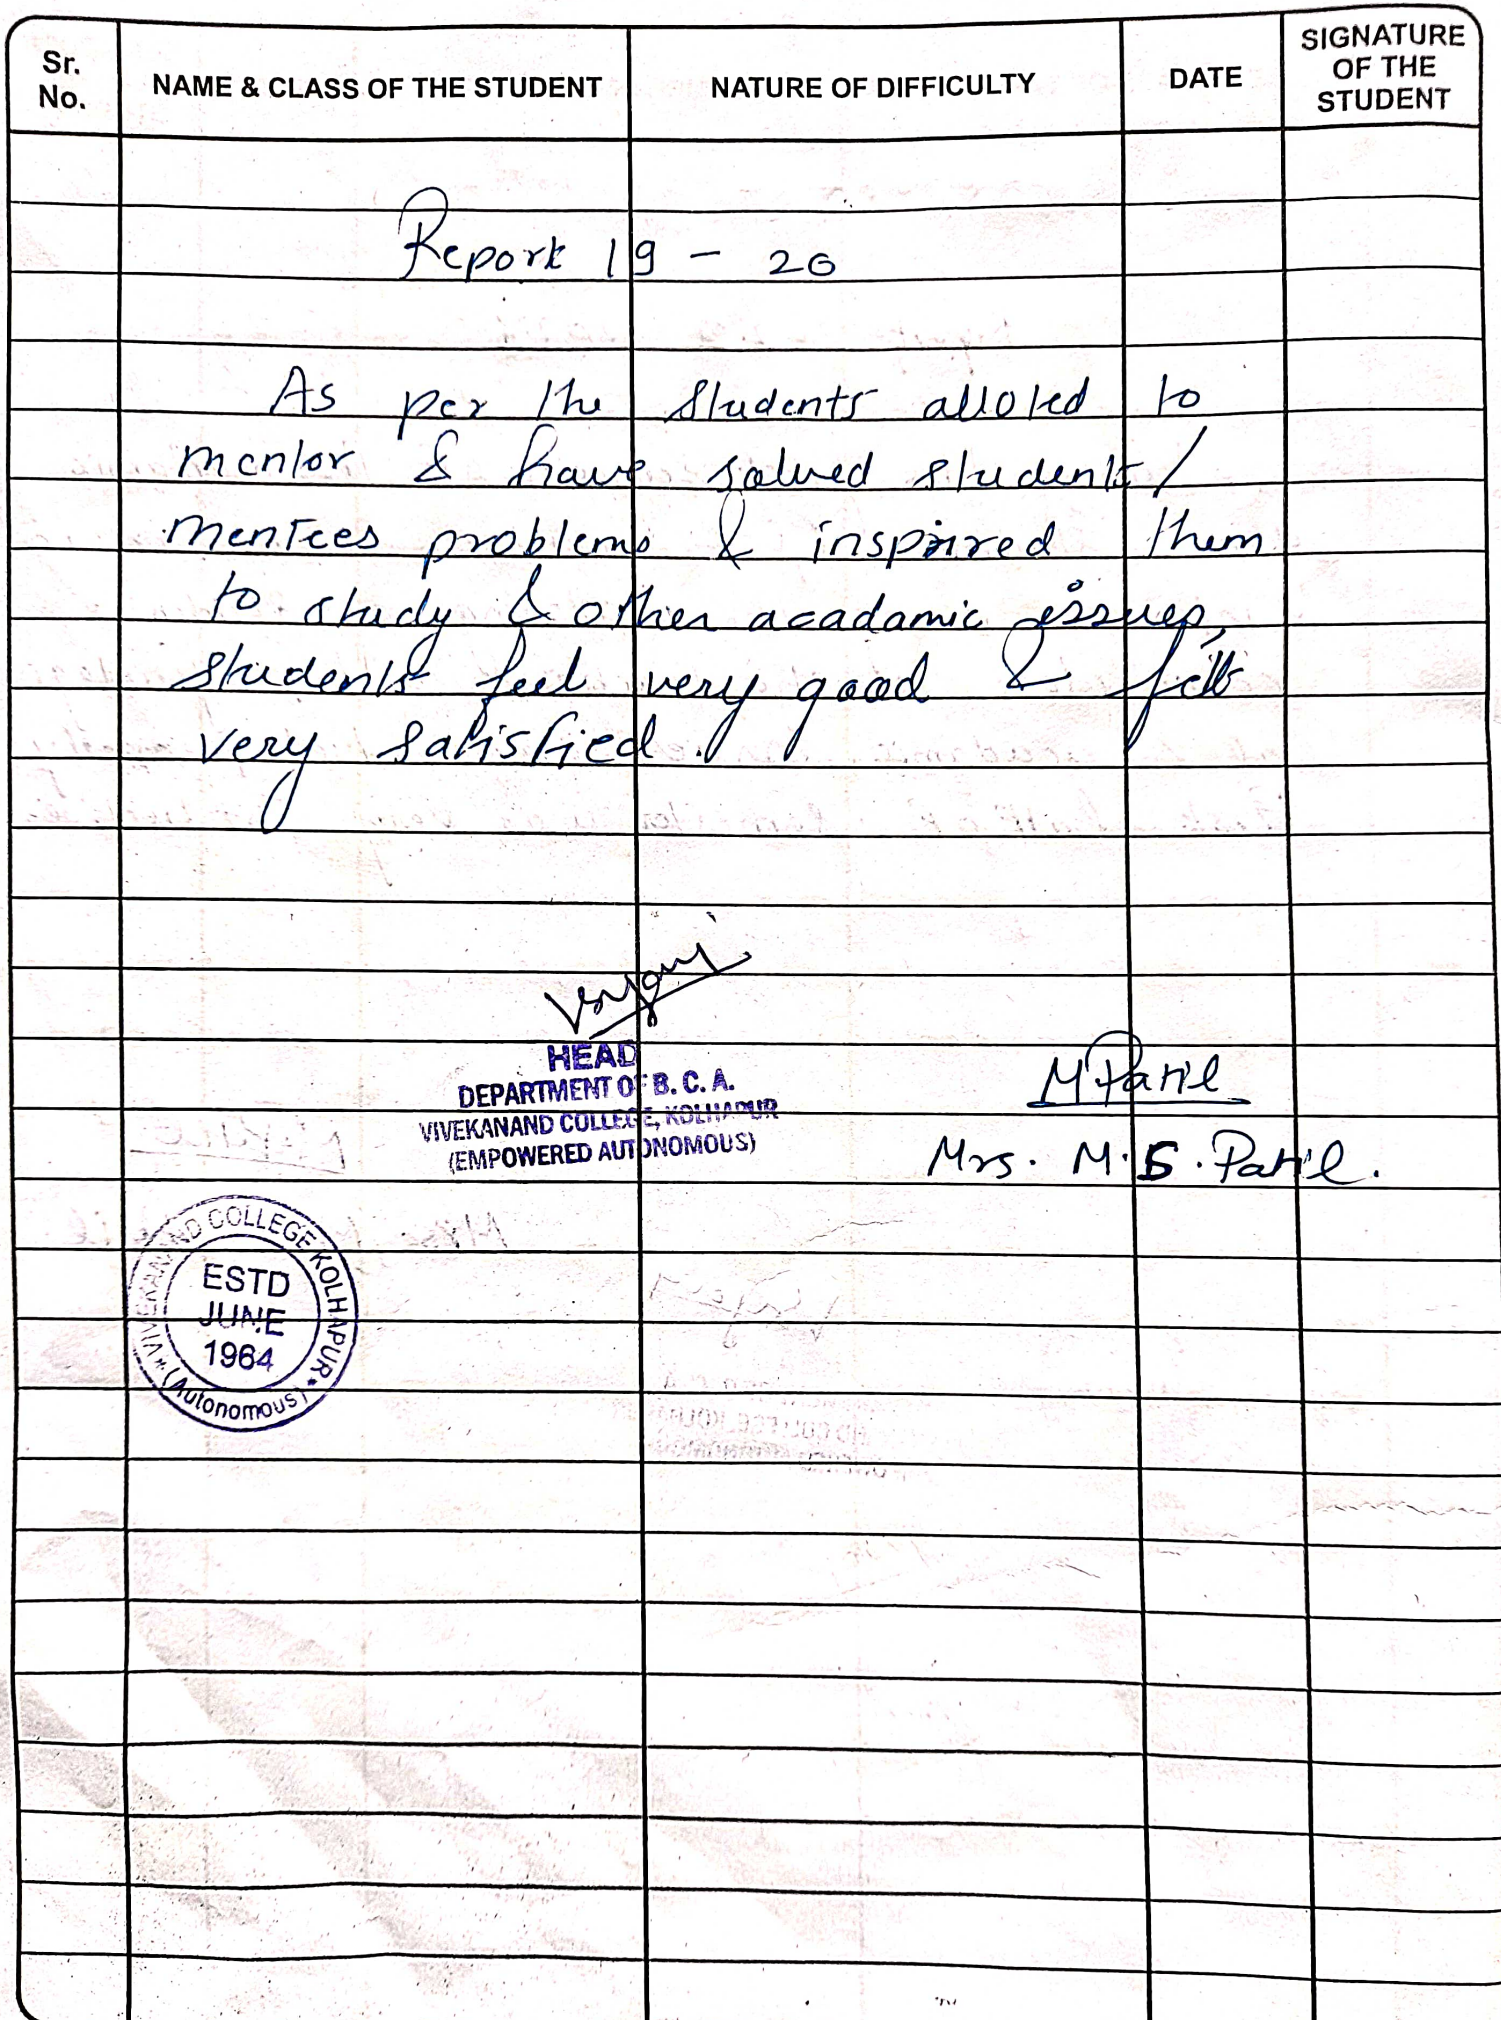 Sr. No.
NAME & CLASS OF THE STUDENT
NATURE OF DIFFICULTY
DATE
SIGNATURE OF THE STUDENT
Report 19 - 20
As per the students alloted to
mentor & have solved students/
mentees problems & inspired them
to study & other acadamic issues,
students feel very good & felt
very satisfied.
HEAD
DEPARTMENT OF B. C. A.
VIVEKANAND COLLEGE, KOLHAPUR
(EMPOWERED AUTONOMOUS)
MPatil
Mrs. M.S. Patil.
VIVEKANAND COLLEGE KOLHAPUR
(Autonomous)
ESTD
JUNE
1964